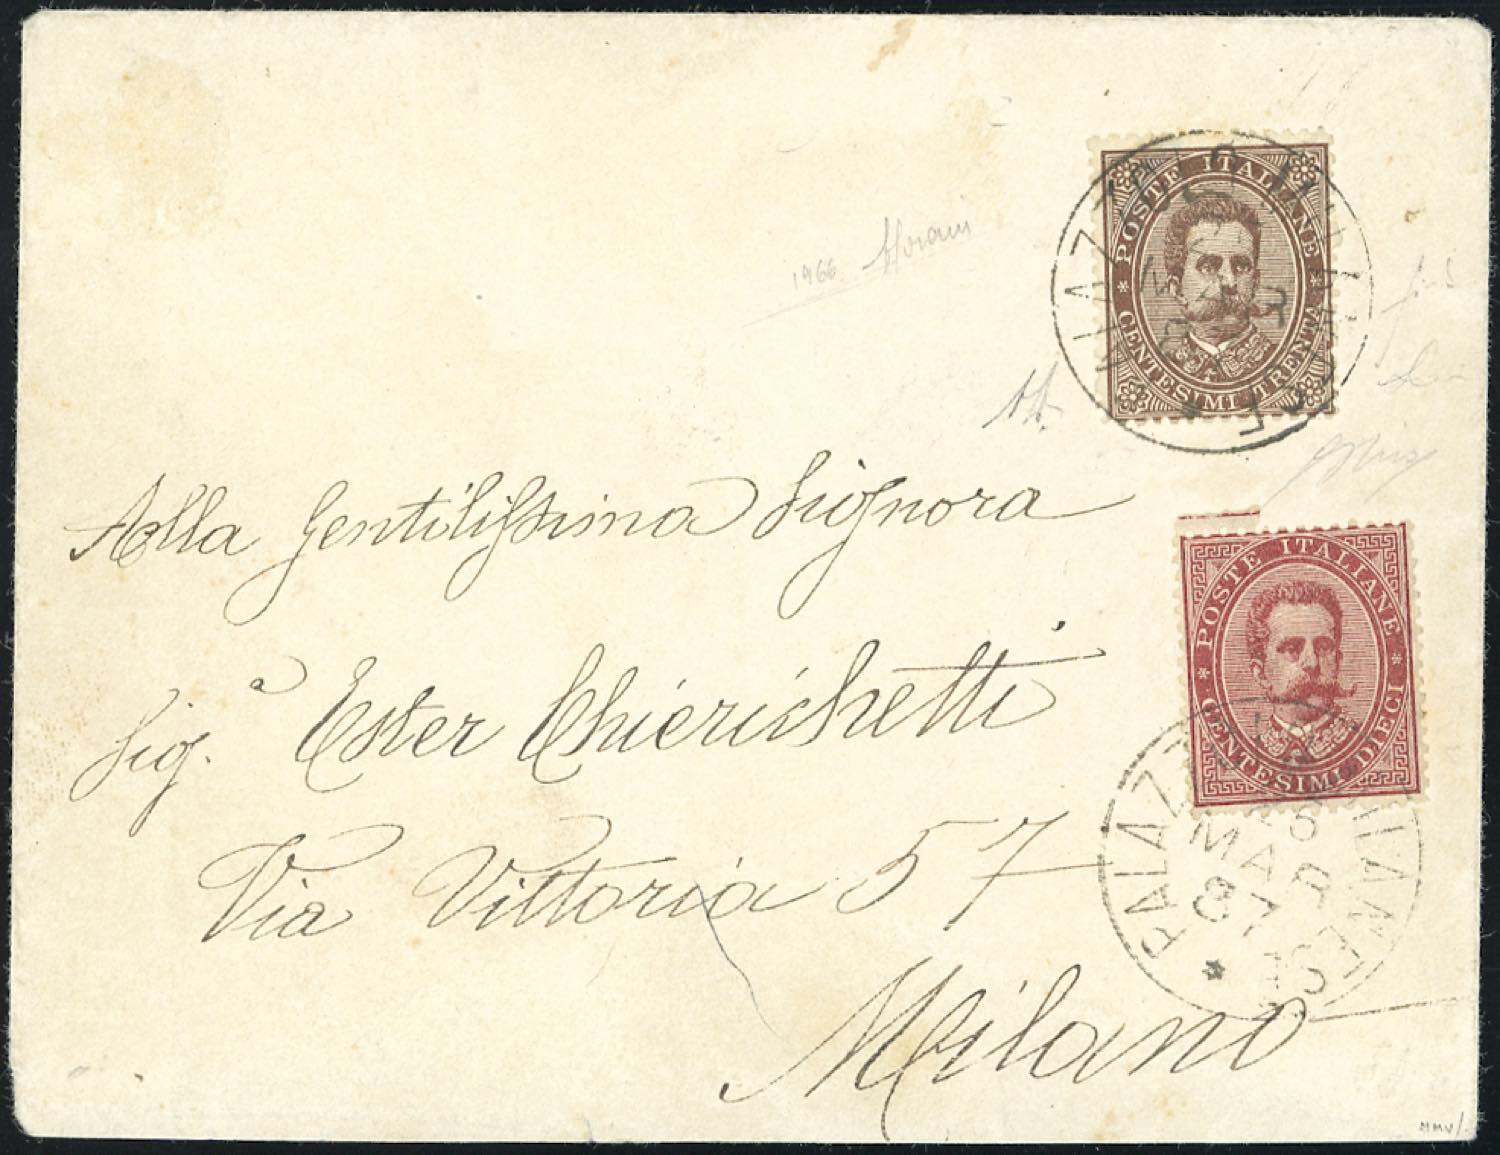 POSTE ITALIANE
CENTESIMI TRENTA
PALAZZOLO MILANESE
1966. 
Alla Gentilissima Signora
Sig.a Ester Chierichetti
Via Vittoria 57
Milano
POSTE ITALIANE
CENTESIMI DIECI
PALAZZOLO MILANESE
MAR
87